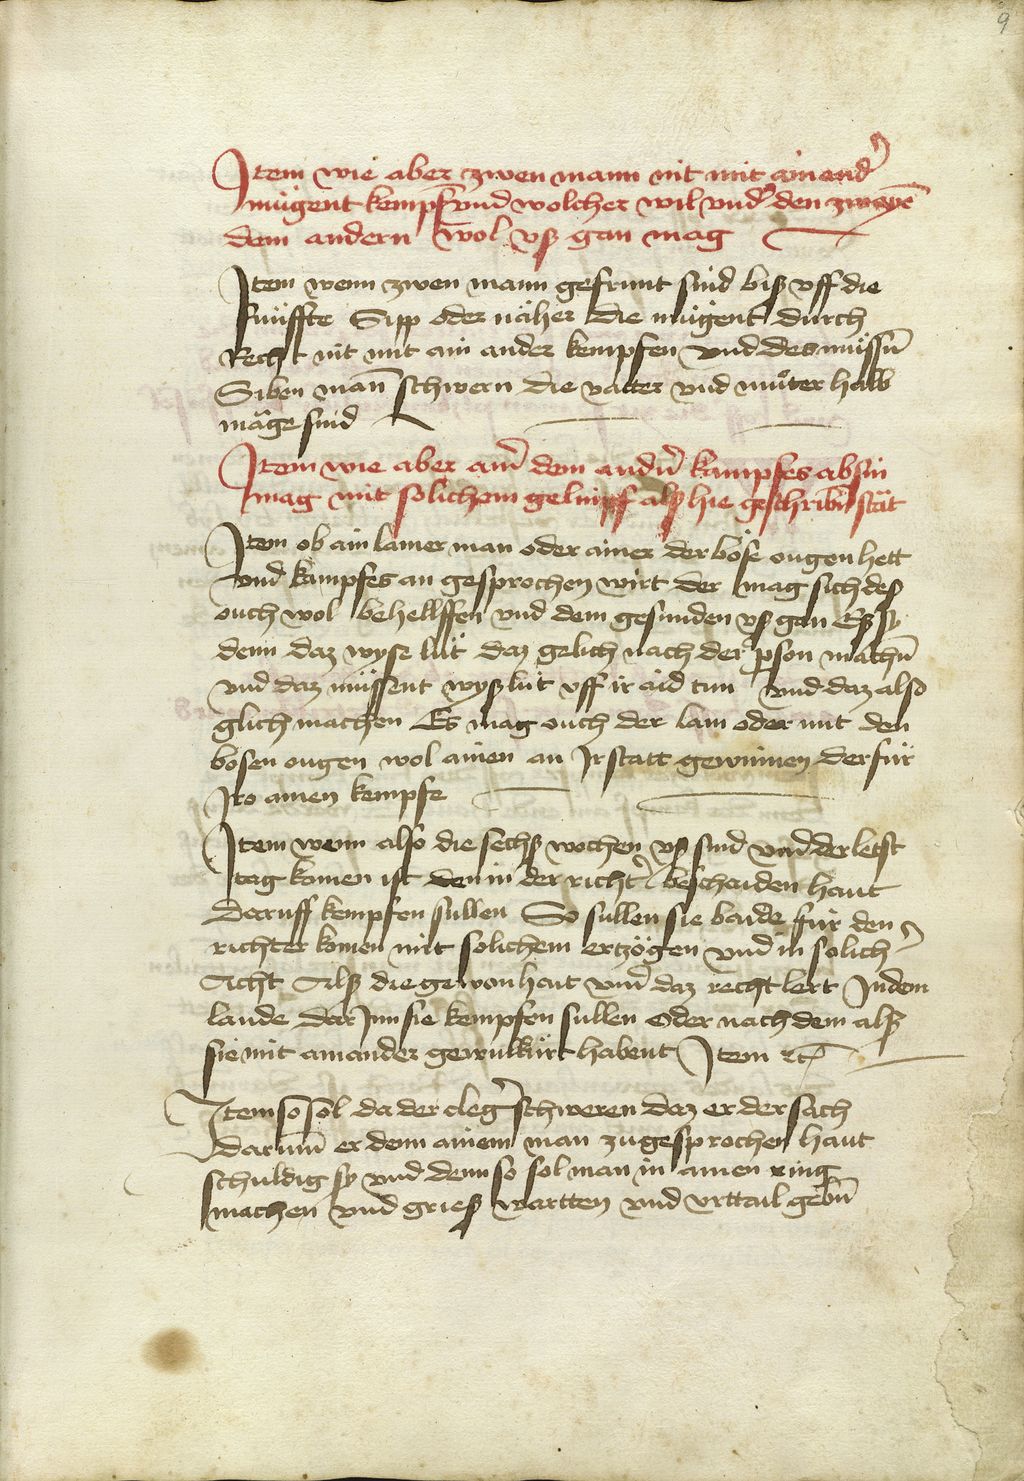 9
Item wie aber zwen mann nit mit ainand᷑
mügent kempfen vnd wolcher wil vnd᷑ den zwayē
dem andern wol vß gan mag
Item wenn zwen mann gefrunt sind biß vff die
fünffte Sipp oder näher die mügent durch
Recht nit mit ain ander kempfen vnd des müssn̄
Siben man̄ schwern die vatter vnd muͦter halb
mâge sind
Item wie aber ain᷑ dem andn᷑ kampfes absin
mag mit solichem gelimpff alß hie geschribn̄ stät
Item ob ain lamer man oder ainer der böse ougen hett
vnd kampfes an gesprochen wirt der mag sich des
ouch wol behellffen vnd dem gesunden vß gan Eß sy
denn daz wyse lüt daz gelich nach der pson machn̄
vnd daz müssent wyß lüt vff ir aid tun vnd daz also
glich machen Es mag ouch der lam oder mit den
bosen ougen wol ainen an Ir statt gewinnen der für
Iro ainen kempfe
Item wenn also die sechß wochen vß sind vnd der letst
tag komen ist den in der richt᷑ beschaiden haut
Daruff kempfen sullen So sullen sie baide für den
richter komen mit solichem erzögen vnd in solich᷑
Acht Alß die gewonhait vnd᷑ daz recht lert In dem
lande dar Inn sie kempfen sullen Oder nach dem alß
sie mit ainander gewillkürt habent Item etc̄
Item so sol da der cleg᷑ schweren daz er der sach
darum̄ er denn ainem man zugesprochen haut
schuldig sy vnd denn so sol man in ainen ring
machen vnd grieß wartten vnd vrttail gebn̄